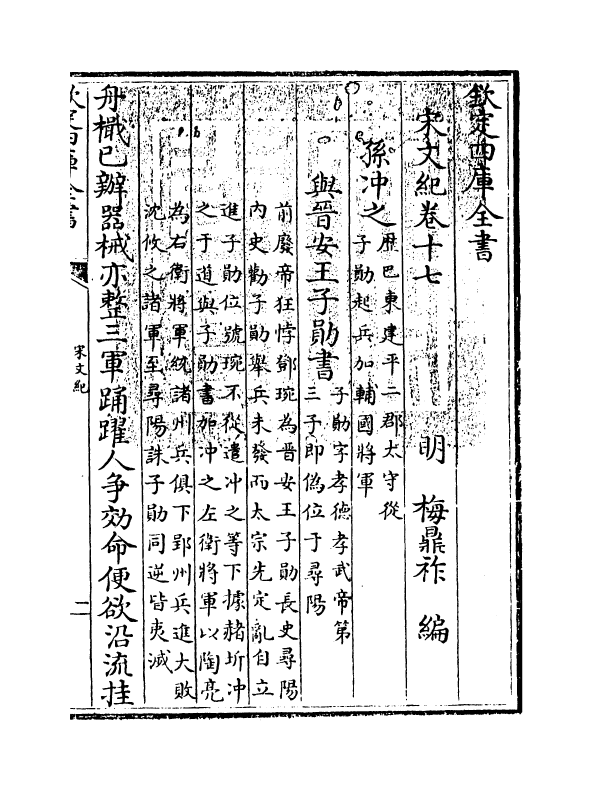 欽定四庫全書
宋文紀卷十七
明 梅鼎祚 編
孫沖之
歴巴東建平二郡太守從
子勛起兵加輔國將軍
與晉安王子勛書
子勛字孝德孝武帝第
三子即偽位于尋陽
前廢帝狂悖鄧琬為晉安王子勛長史尋陽
內史勸子勛舉兵未發而太宗先定亂自立
進子勛位號琬不從遣沖之等下據赭圻沖
之于道與子勛書加沖之左衛將軍以陶亮
為右衛將軍統諸州兵俱下郢州兵進大敗
沈攸之諸軍至尋陽誅子勛同逆皆夷滅
舟檝已辦器械亦整三軍踊躍人爭効命便欲沿流挂
欽定四庫全書
宋文紀